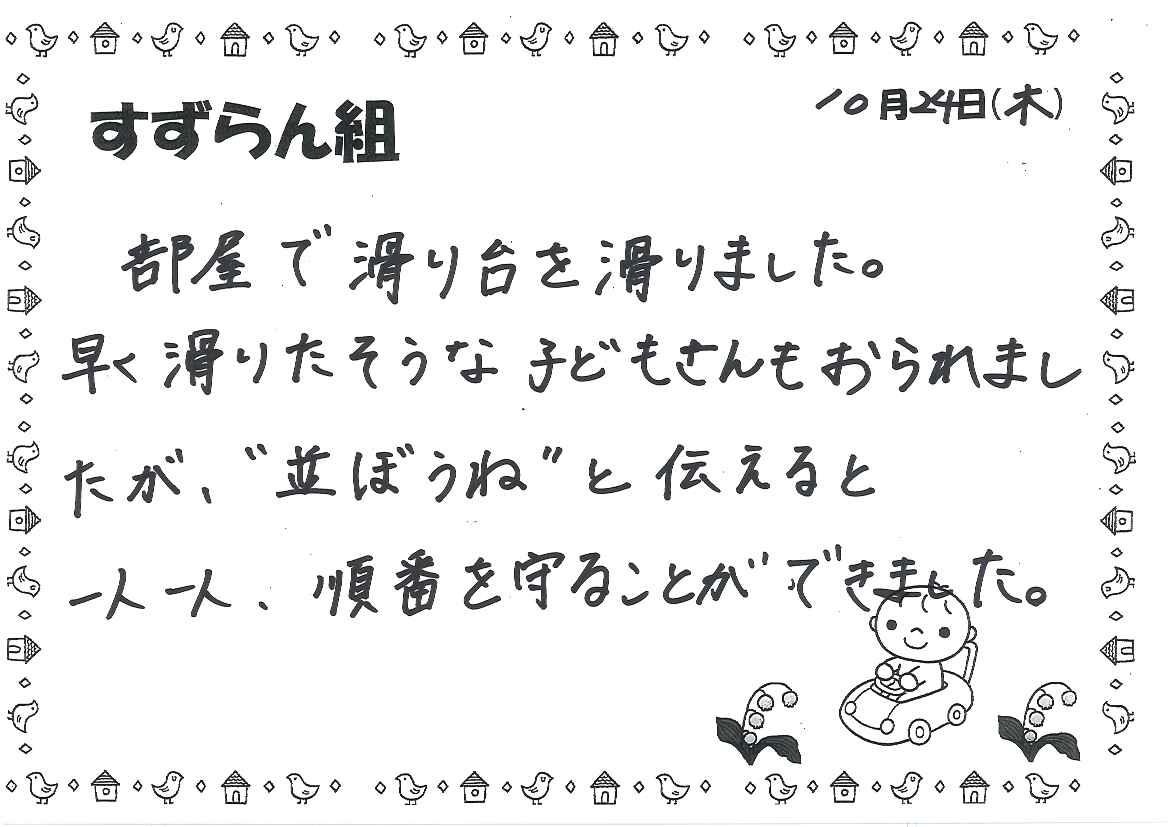 すずらん組
10月24日(木)
部屋で滑り台を滑りました。
早く滑りたそうな子どもさんもおられまし
たが、"並ぼうね"と伝えると
一人一人、順番を守ることができました。